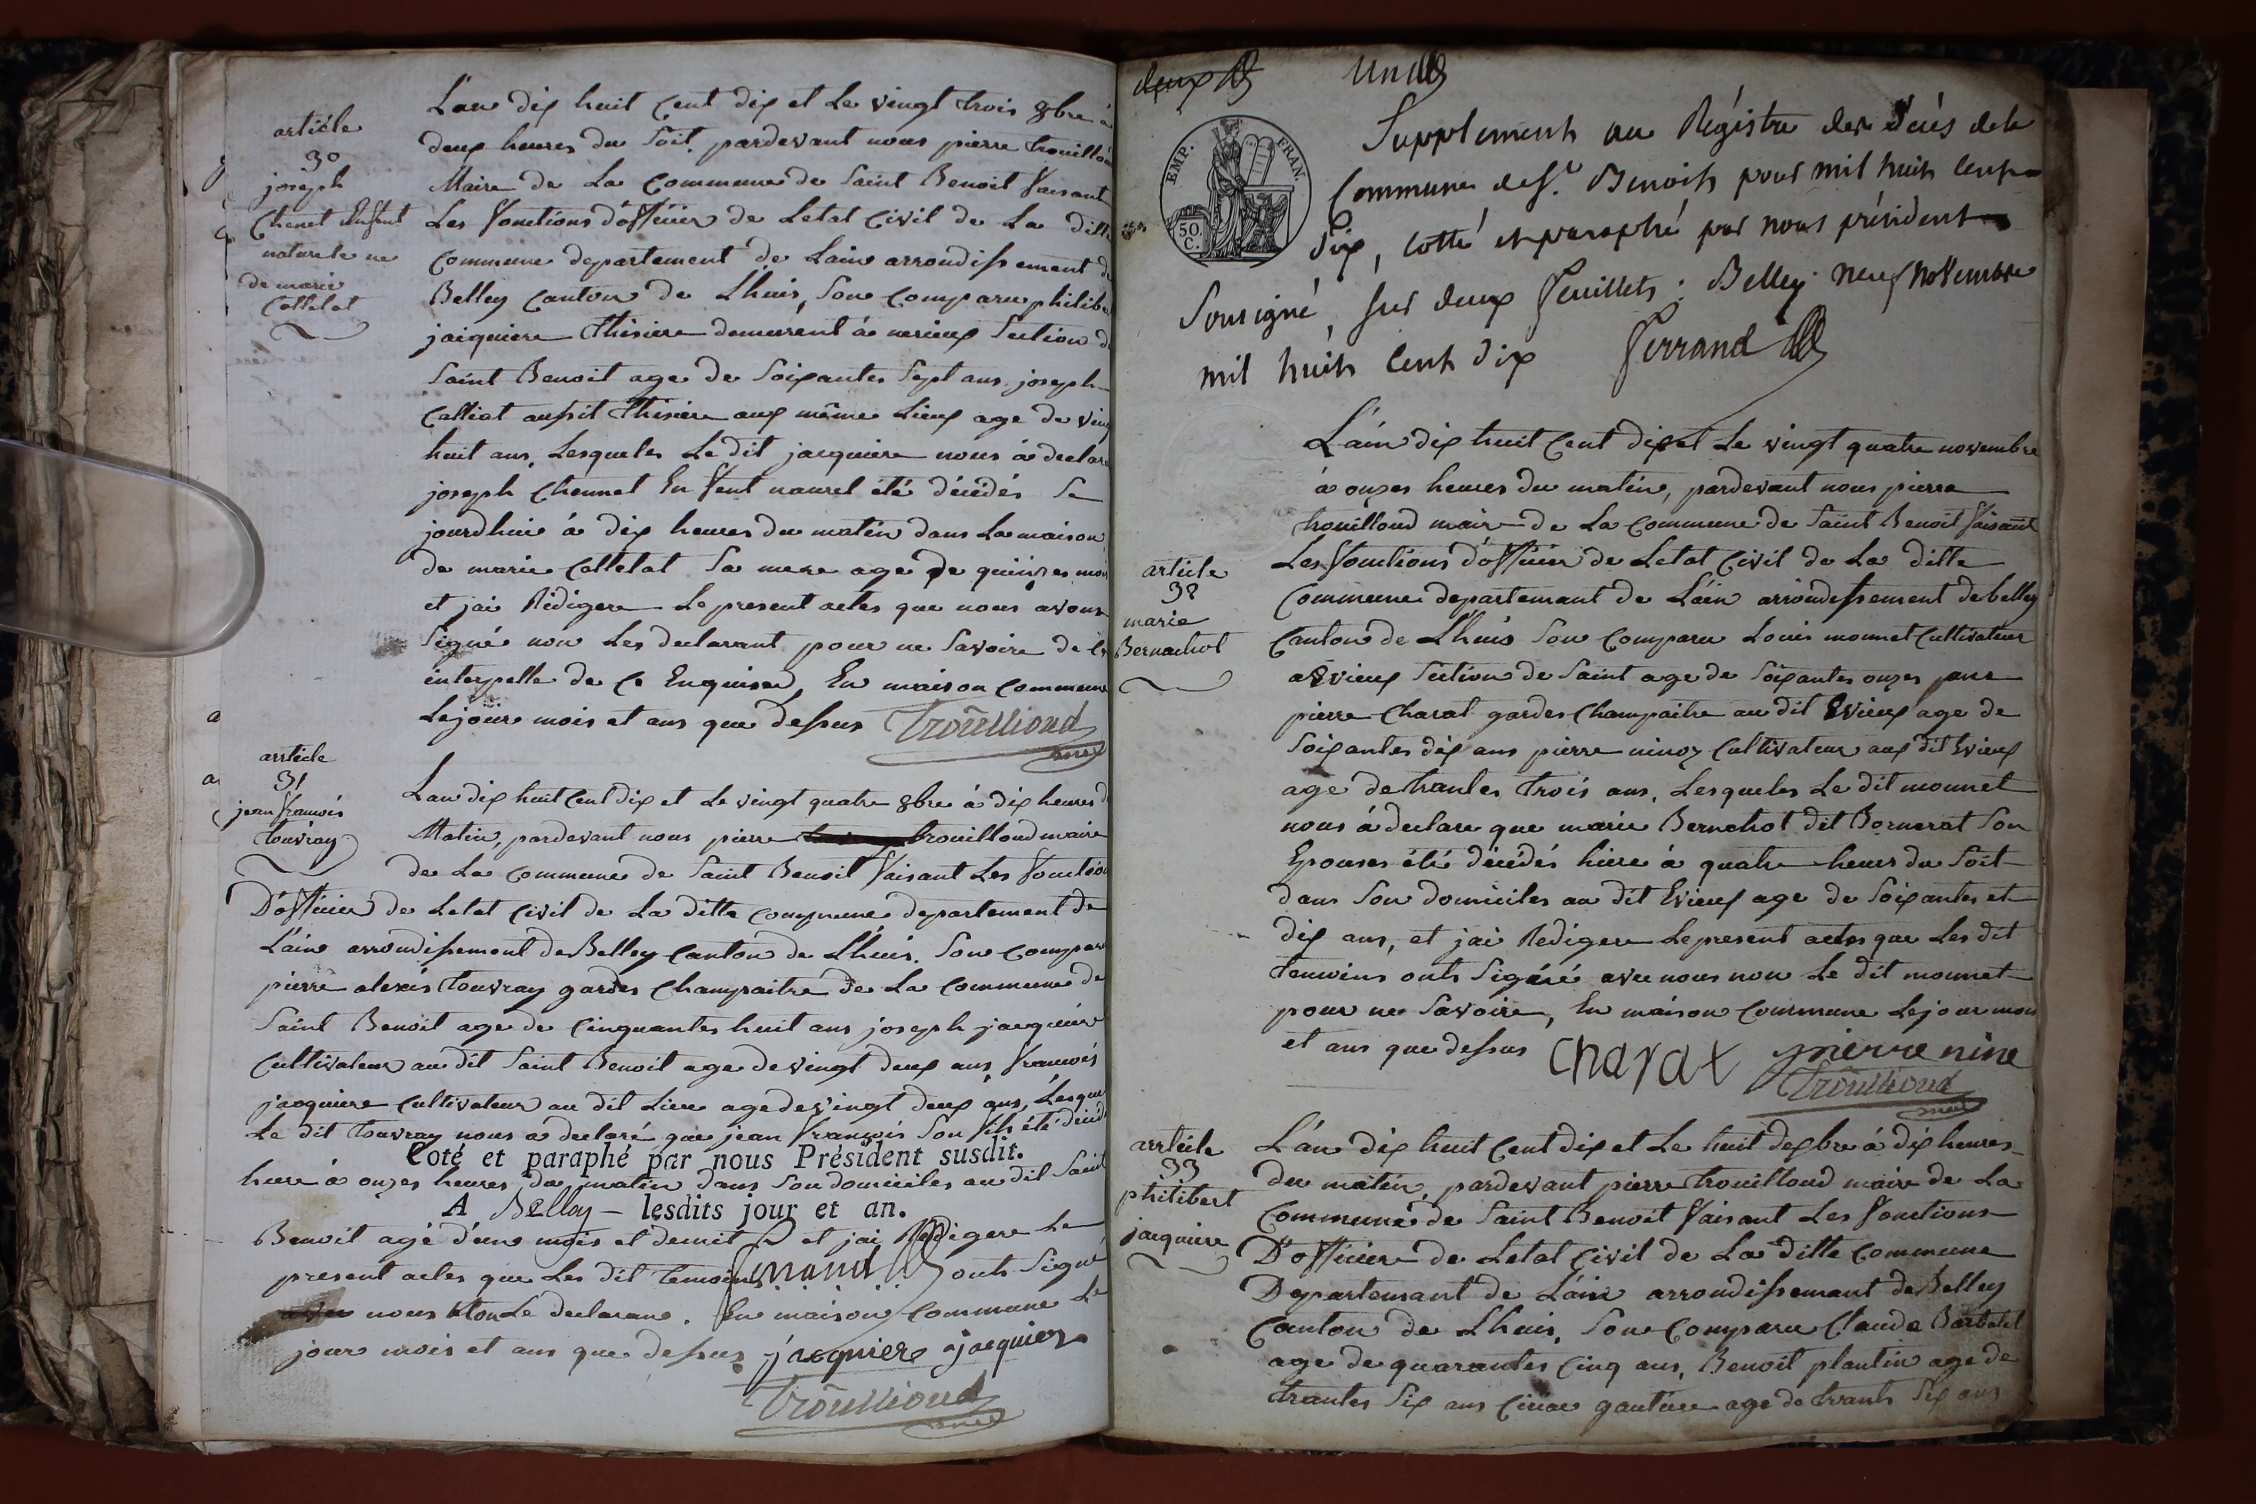 article
30
joseph
Chenet Enfent
naturele ne
de marie
Colletat
L'an dix huit Cent dix et Le vingt trois 8bre à
deux heures du Soit, pardevant nous pierre trouillou
Maire de La Commune de Saint Benoit faisant
Les fonctions d'officier de Letat Civil de La ditte
Commune departement de Lain arrondissement de
Belley Canton de Lhuis, Son Comparu philibe
jacquiere thisiere demeurent à Section d
Saint Benoit age de Soixantes Sept ans joseph
Calliat aussit thisiere aux même Lieux age de ving
huit ans, Lesqueles Le dit jacquiere nous à declare
joseph Chennet En fent naurel été décédés Se
jourdhui à dix heures du matin dans La maison
de marie Colletat Sa mere age de quinzes mois
et jai Rédigere Le present actes que nous avons
Signé non Les declarant pour ne Savoire de Ce
interpelle de Ce Enquiser, En maison Commune
Le jour mois et ans que dessus Trouilloud
maire
arrticle
31
jean francois
touvray
L'an dix huit Cent dix et Le vingt quatre 8bre à dix heures d
Matin, pardevant nous pierre trouilloud maire
de La Commune de Saint Benoit faisant Les fonction
D'officier de Letat Civil de La ditte Commune departement de
L'ain arrondissement de Belley Canton de Lhuis. Son Compar
pierre alexis touvray gardes Champaitre de La Commune de
Saint Benoit age de Cinquantes huit ans joseph jacquier
Cultivateur au dit Saint Benoit age de vingt deux ans francois
jacquiere Cultivateur au dit Lieu age de vingt deux ans, Lesque
Le dit touvray nous a declaré que jean francois Son fils été décéd
Coté et paraphé par nous Président susdit.
hiere à onzes heures du matin dans Son domiciles au dit Saint
A Belley — lesdits jour et an.
Benoit agé d'un mois et demit et jai Redigere Le
present actes que Les dit temoins ferrand onts Signé
avec nous non Le declarans. En maison Commune Le
jour mois et ans que dessus jacquiere jacquier
Trouilloud
maire
deux
un
EMP. FRAN.
50.
C.
Supplement au Régistre des décés dela
Commune de St. Benoit pour mil huit Cent
Dix, cotté et paraphé par nous président
Sousigné, sur deux feuillets; Belley neuf novembre
mil huit Cent dix ferrand
article
32
marie
Bernachot
L'ain dix huit Cent dix et Le vingt quatre novembre
à onzes heures du matin, pardevant nous pierre
trouilloud maire de La Commune de Saint Benoit faisant
Les fonctions d'officier de Letat Civil de La ditte
Commune departemant de L'ain arrondissement de belley
Canton de Lhuis Son Comparu Louis monnet Cultivateur
a Evieux Section de Saint age de Soixantes onzes ans
pierre Charat gardes Champaitre au dit Evieux age de
Soixantes dix ans pierre ninoz Cultivateur aux dit Evieux
age de trantes trois ans, Lesqueles Le dit monnet
nous à declare que marie Bernachot dit Bornerat Son
Epouses été décédés hiere à quatre heures du Soit
dans Son domiciles au dit Evieux age de Soixantes et
dix ans, et jai Redigere Le present actes que Les dit
temoins onts Signéé avec nous non Le dit monnet
pour ne Savoire, En maison Commune Le jour mois
et ans que dessus Charat pierre nine
Trouilloud
maire
arrticle
33
philibert
jacquiere
L'an dix huit Cent dix et Le huit dexbre à dix heures
du matin, pardevant pierre trouilloud maire de La
Commune de Saint Benoit faisant Les fonctions
D'officiere de Letat Civil de La ditte Commune
Departemant de L'ain arrondissemant de Belley
Canton de Lhuis, Son Comparu Claude Barbetel
age de quarantes Cinq ans, Benoit plantin age de
trantes Six ans gantier age de trants Six ans